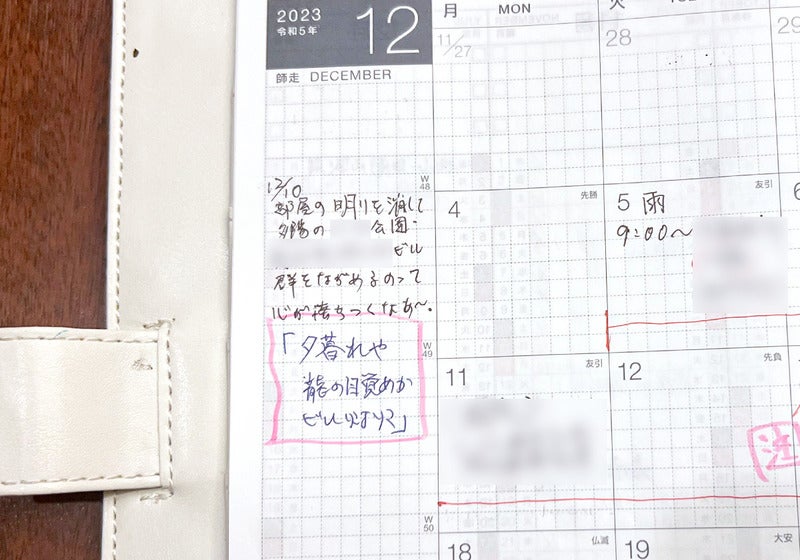 2023
令和5年
12
師走 DECEMBER
月 MON
火
11/27
28
29
W48
12/10
部屋の明りを消して
夕陽の 公園・
ビル
群をながめるのって
心が落ちつくなあ〜。
「夕暮れや
龍の目覚めか
ビルひかり」
4
先勝
5 雨
友引
9:00〜
6
W49
11
友引
12
先負
注
W50
18
仏滅
19
大安